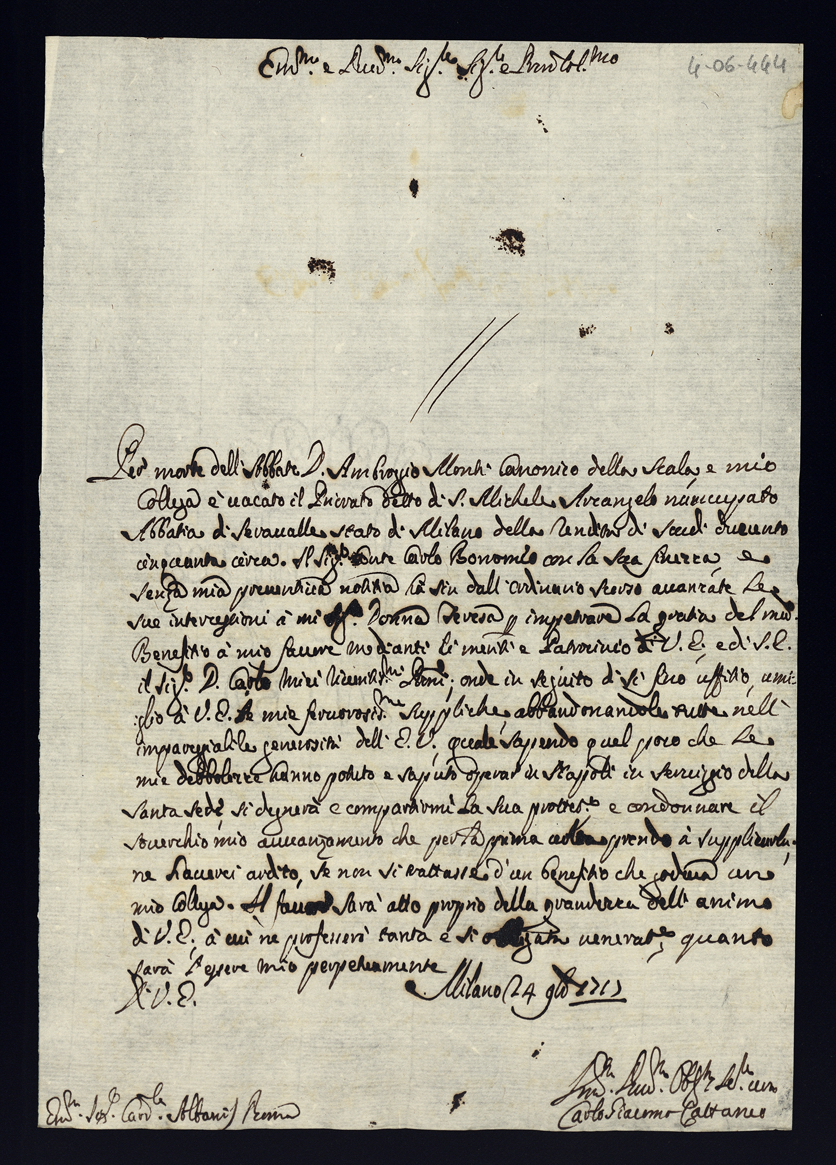 Em.mo e Rev.mo Sig.re Sig.re e Pron Col.mo
4-06-444
Per morte dell'Abbate D. Ambrogio Monti Canonico della Scala e mio
Collega è vacato il Priorato detto di S. Michele Arcangelo nuncupato
Abbatia di Seravalle stato di Milano della rendita di Scudi ducento
cinquanta circa. Il Sig.r Conte Carlo Bonomeo con la sua
senza mia preventiva notitia hà sin dall'ordinario scorso avanzate le
sue intercessioni à mi Sig.ra Donna Teresa p impetrare la gratia del
Benefitio à mio favore medianti li meriti e Patrocinio di V. E. e di S. E.
il Sig.r D. Carlo miei onde in seguito di si uffitio, umi-
glio à V. E. le mie fervorosis.me suppliche, abbandonandole tutte nell'
impareggiabile generosità dell'E. V., quale sapendo quel poco che le
mie debbolezze hanno potuto e saputo operar in Napoli in serviggio della
Santa Sede, si degnerà e compartirmi la sua protet.ne e condonnare il
soverchio mio avvanzamento che per la prima volta prendo à supplicarla,
ne haverei ardito, se non si trattasse d'un benefitio che godeva un
mio Collega. Il favor sarà atto proprio della grandezza dell'animo
di V. E., à cui ne professerò tanta e si obligata venerat.e, quanto
sarà l'essere mio perpetuamente
Di V. E.
Milano 24 1717
Em.mo Sig.r Card.le Albani / Roma
Um.mo Dev.mo Obl.mo Ser.re
Carlo Giacomo Cattaneo